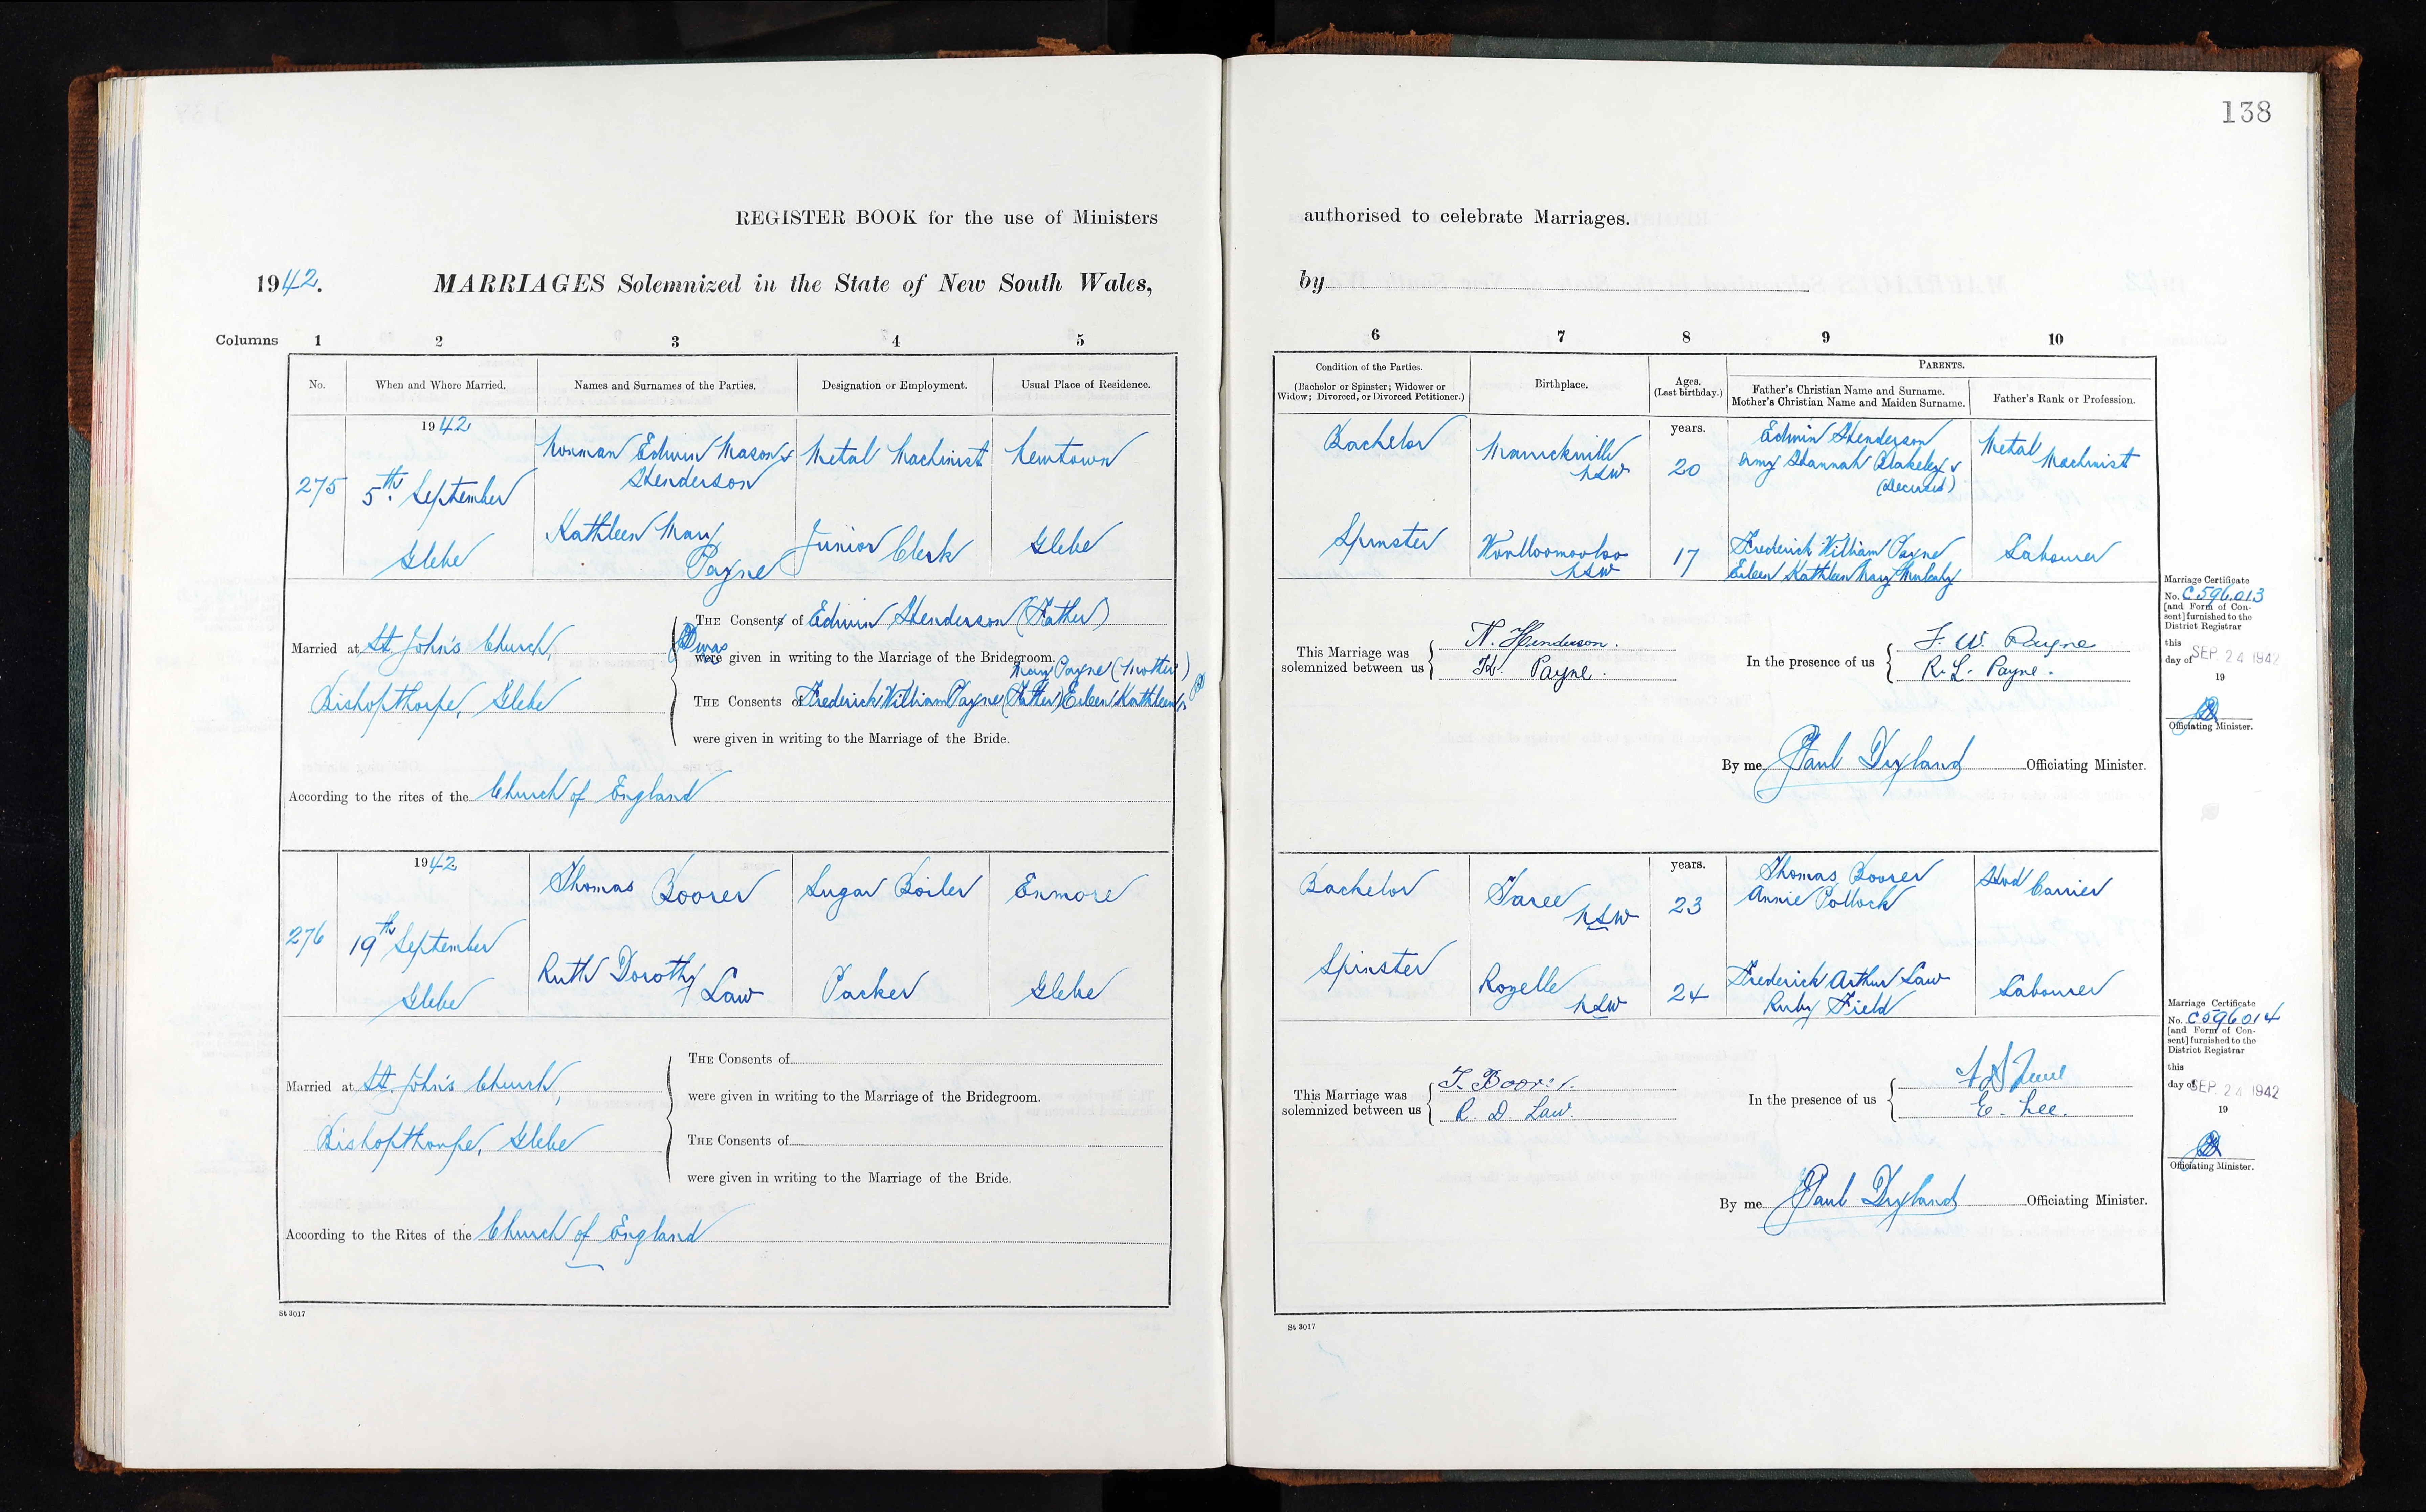 138
REGISTER BOOK for the use of Ministers
authorised to celebrate Marriages.
1942.
MARRIAGES Solemnized in the State of New South Wales,
by
Columns 1 2 3 4 5
6 7 8 9 10
No. When and Where Married. Names and Surnames of the Parties. Designation or Employment. Usual Place of Residence.
Condition of the Parties.
(Bachelor or Spinster; Widower or
Widow; Divorced, or Divorced Petitioner.)
Birthplace.
Ages.
(Last birthday.)
PARENTS.
Father's Christian Name and Surname.
Mother's Christian Name and Maiden Surname.
Father's Rank or Profession.
1942
275
5th September
Glebe
Norman Edwin Mason
Henderson
Metal Machinist
Newtown
Kathleen May
Payne
Junior Clerk
Glebe
Bachelor
Marrickville
NSW
years.
20
Edwin Henderson
Amy Hannah Blakeley
(Deceased)
Metal
Machinist
Spinster
Woolloomooloo
NSW
17
Frederick William Payne
Eileen Kathleen May Mulcahy
Labourer
Married at St. John's Church,
Bishopthorpe, Glebe
THE Consents of Edwin Henderson (Father)
was
were given in writing to the Marriage of the Bridegroom.
May Payne (Mother)
THE Consents of Frederick William Payne (Father) Eileen Kathleen
were given in writing to the Marriage of the Bride.
According to the rites of the Church of England
This Marriage was
solemnized between us
N. Henderson.
K. Payne.
In the presence of us
F. W. Payne
R. L. Payne.
By me Paul Dryland Officiating Minister.
Marriage Certificate
No. C596.013
[and Form of Con-
sent] furnished to the
District Registrar
this
day of SEP 24 1942
19
Officiating Minister.
1942
276
19th September
Glebe
Thomas Boorer
Sugar Boiler
Enmore
Ruth Dorothy
Law
Packer
Glebe
Bachelor
Taree
NSW
years.
23
Thomas Boorer
Annie Pollock
Hod Carrier
Spinster
Rozelle
NSW
24
Frederick Arthur Law
Ruby Field
Labourer
Married at St. John's Church,
Bishopthorpe, Glebe
THE Consents of
were given in writing to the Marriage of the Bridegroom.
THE Consents of
were given in writing to the Marriage of the Bride.
According to the Rites of the Church of England
This Marriage was
solemnized between us
T. Boorer.
R. D. Law.
In the presence of us
E. Lee.
By me Paul Dryland Officiating Minister.
Marriage Certificate
No. C596014
[and Form of Con-
sent] furnished to the
District Registrar
this
day of SEP 24 1942
19
Officiating Minister.
St 3017
St 3017